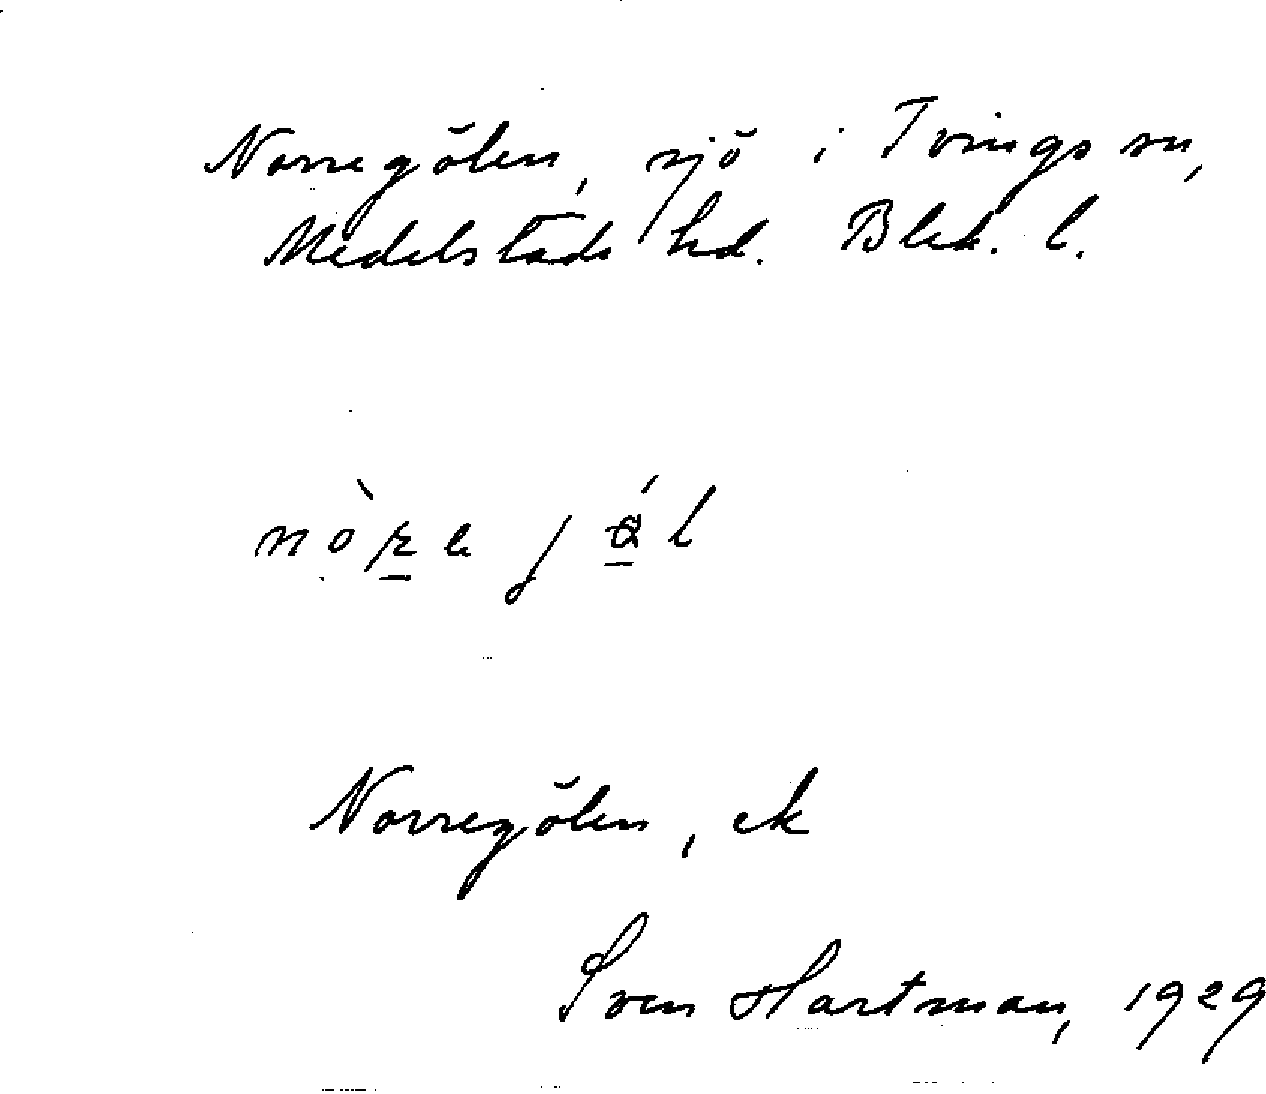 Norregölen, sjö i Tvings sn,
Medelstads hd. Blek. l.
Norregölen, ek
Sven Hartman, 1929